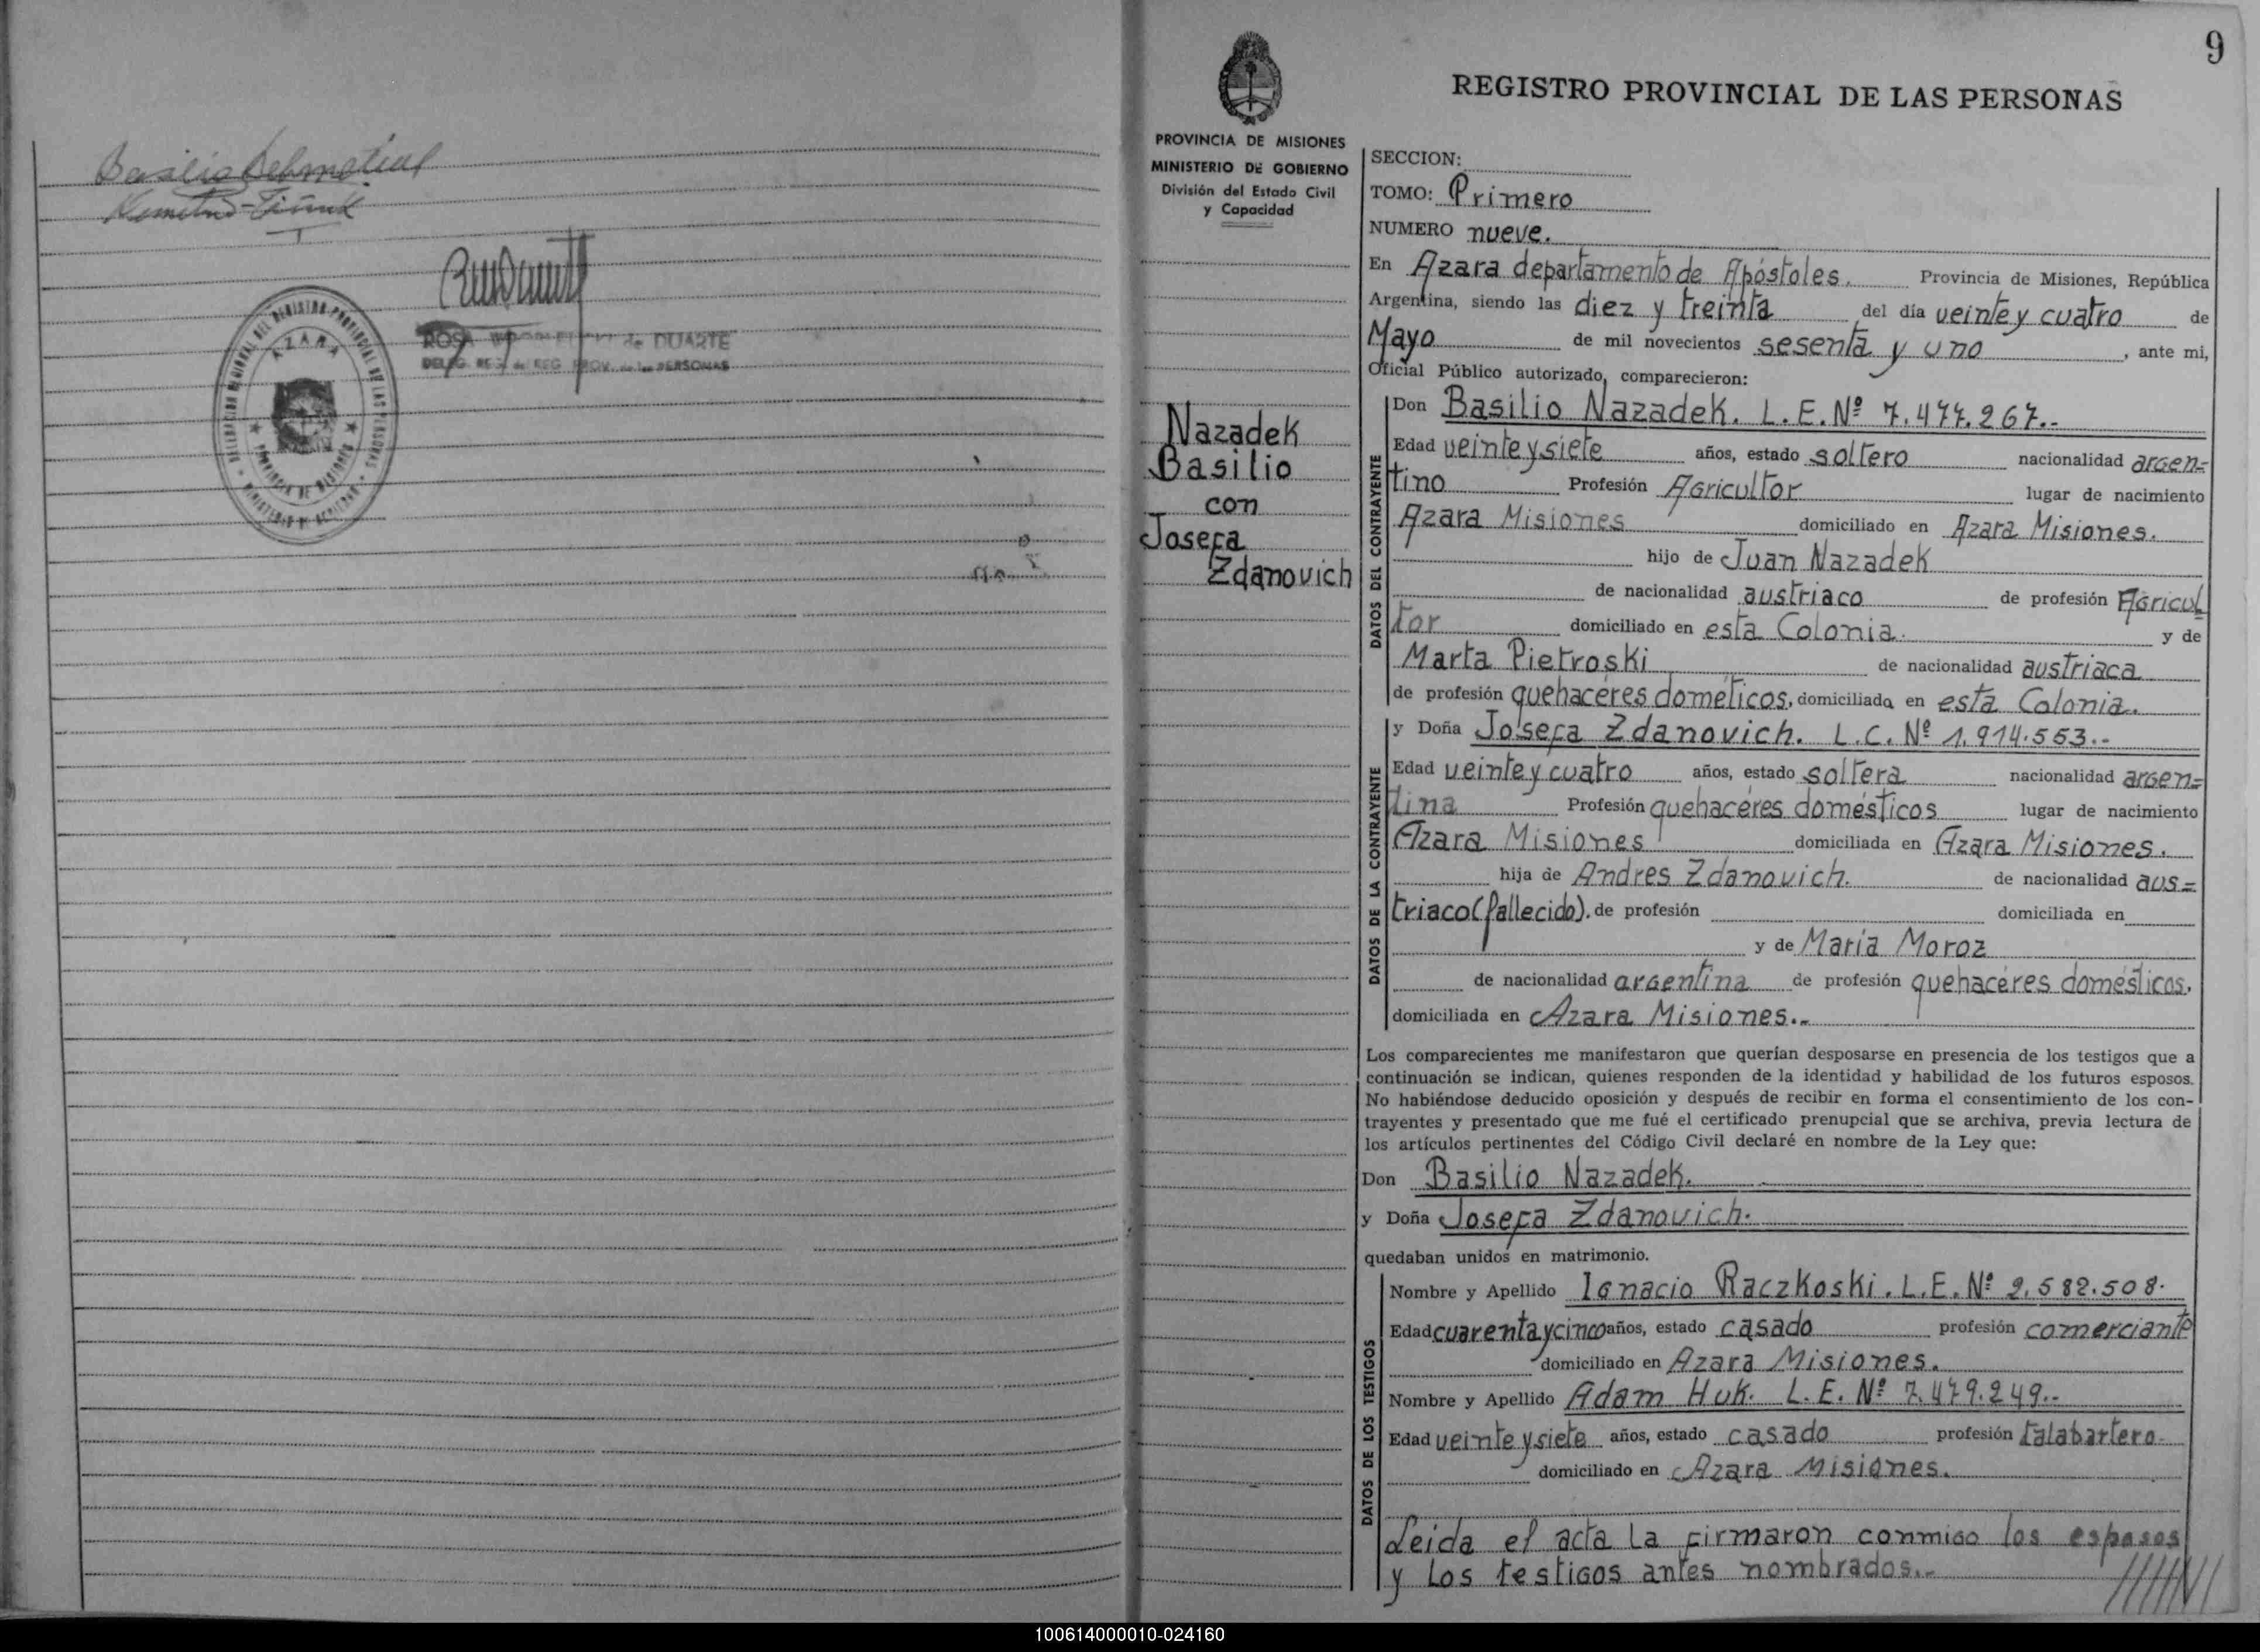 Basilio
AZARA
ROSA de DUARTE
DELEG. REG. del REG. PROV. de las PERSONAS
9
REGISTRO PROVINCIAL DE LAS PERSONAS
PROVINCIA DE MISIONES
MINISTERIO DE GOBIERNO
División del Estado Civil
y Capacidad
Nazadek
Basilio
con
Josefa
Zdanovich
SECCION:
TOMO: Primero
NUMERO nueve.
En Azara departamento de Apóstoles. Provincia de Misiones, República
Argentina, siendo las diez y treinta del día veinte y cuatro de
Mayo de mil novecientos sesenta y uno, ante mi,
Oficial Público autorizado, comparecieron:
DATOS DEL CONTRAYENTE
Don Basilio Nazadek. L.E.Nº 7.477.267.-
Edad veinte y siete años, estado soltero nacionalidad argen=
tino Profesión Agricultor lugar de nacimiento
Azara Misiones domiciliado en Azara Misiones.
hijo de Juan Nazadek
de nacionalidad austriaco de profesión Agricul
tor domiciliado en esta Colonia. y de
Marta Pietroski de nacionalidad austriaca
de profesión quehacéres dométicos, domiciliada en esta Colonia.
DATOS DE LA CONTRAYENTE
y Doña Josefa Zdanovich. L.C. Nº 1.914.553.-
Edad veinte y cuatro años, estado soltera nacionalidad argen=
tina Profesión quehacéres domésticos lugar de nacimiento
Azara Misiones domiciliada en Azara Misiones.
hija de Andres Zdanovich. de nacionalidad aus=
triaco (fallecido). de profesión domiciliada en
y de María Moroz
de nacionalidad argentina de profesión quehacéres domésticos,
domiciliada en Azara Misiones.-
Los comparecientes me manifestaron que querían desposarse en presencia de los testigos que a
continuación se indican, quienes responden de la identidad y habilidad de los futuros esposos.
No habiéndose deducido oposición y después de recibir en forma el consentimiento de los con-
trayentes y presentado que me fué el certificado prenupcial que se archiva, previa lectura de
los artículos pertinentes del Código Civil declaré en nombre de la Ley que:
Don Basilio Nazadek.
y Doña Josefa Zdanovich.
quedaban unidos en matrimonio.
DATOS DE LOS TESTIGOS
Nombre y Apellido Ignacio Raczkoski. L.E. Nº 2.582.508.
Edad cuarenta y cinco años, estado casado profesión comerciante
domiciliado en Azara Misiones.
Nombre y Apellido Adam Huk. L.E. Nº 7.479.249.-
Edad veinte y siete años, estado casado profesión talabartero
domiciliado en Azara Misiones.
Leida el acta la firmaron conmigo los esposos
y los testigos antes nombrados.-
100614000010-024160